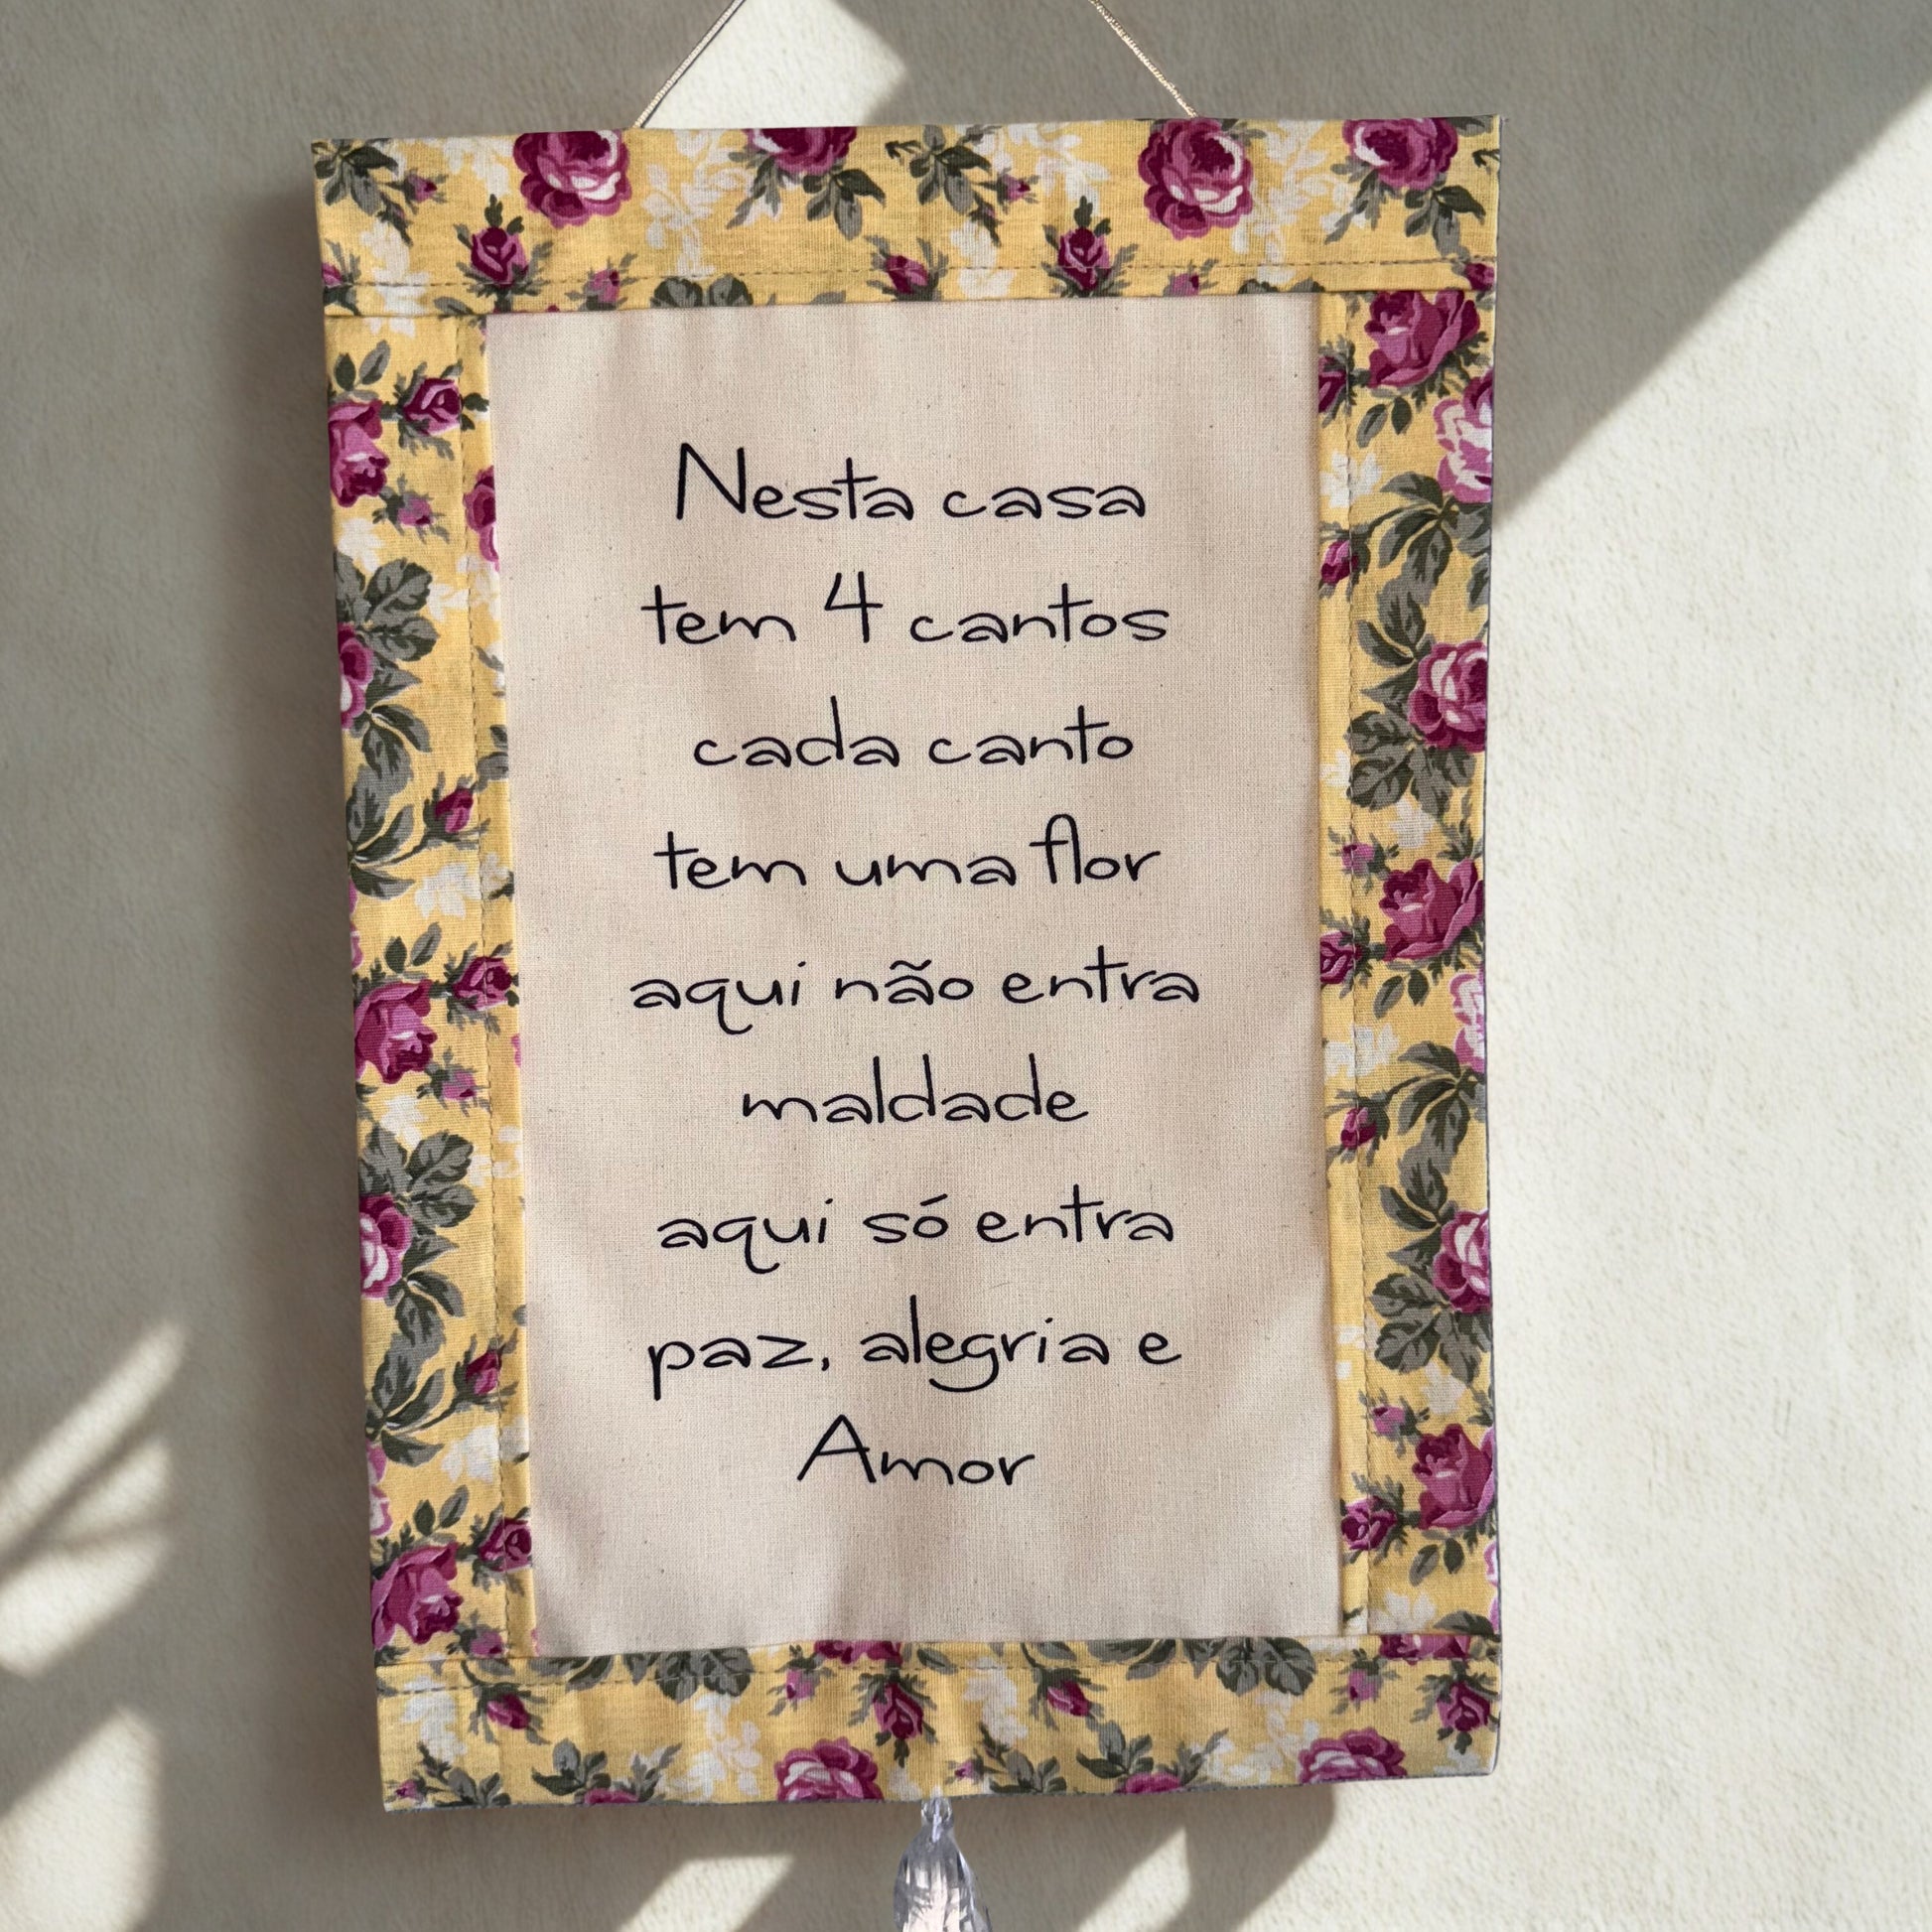 Nesta casa
tem 4 cantos
cada canto
tem uma flor
aqui não entra
maldade
aqui só entra
paz, alegria e
Amor